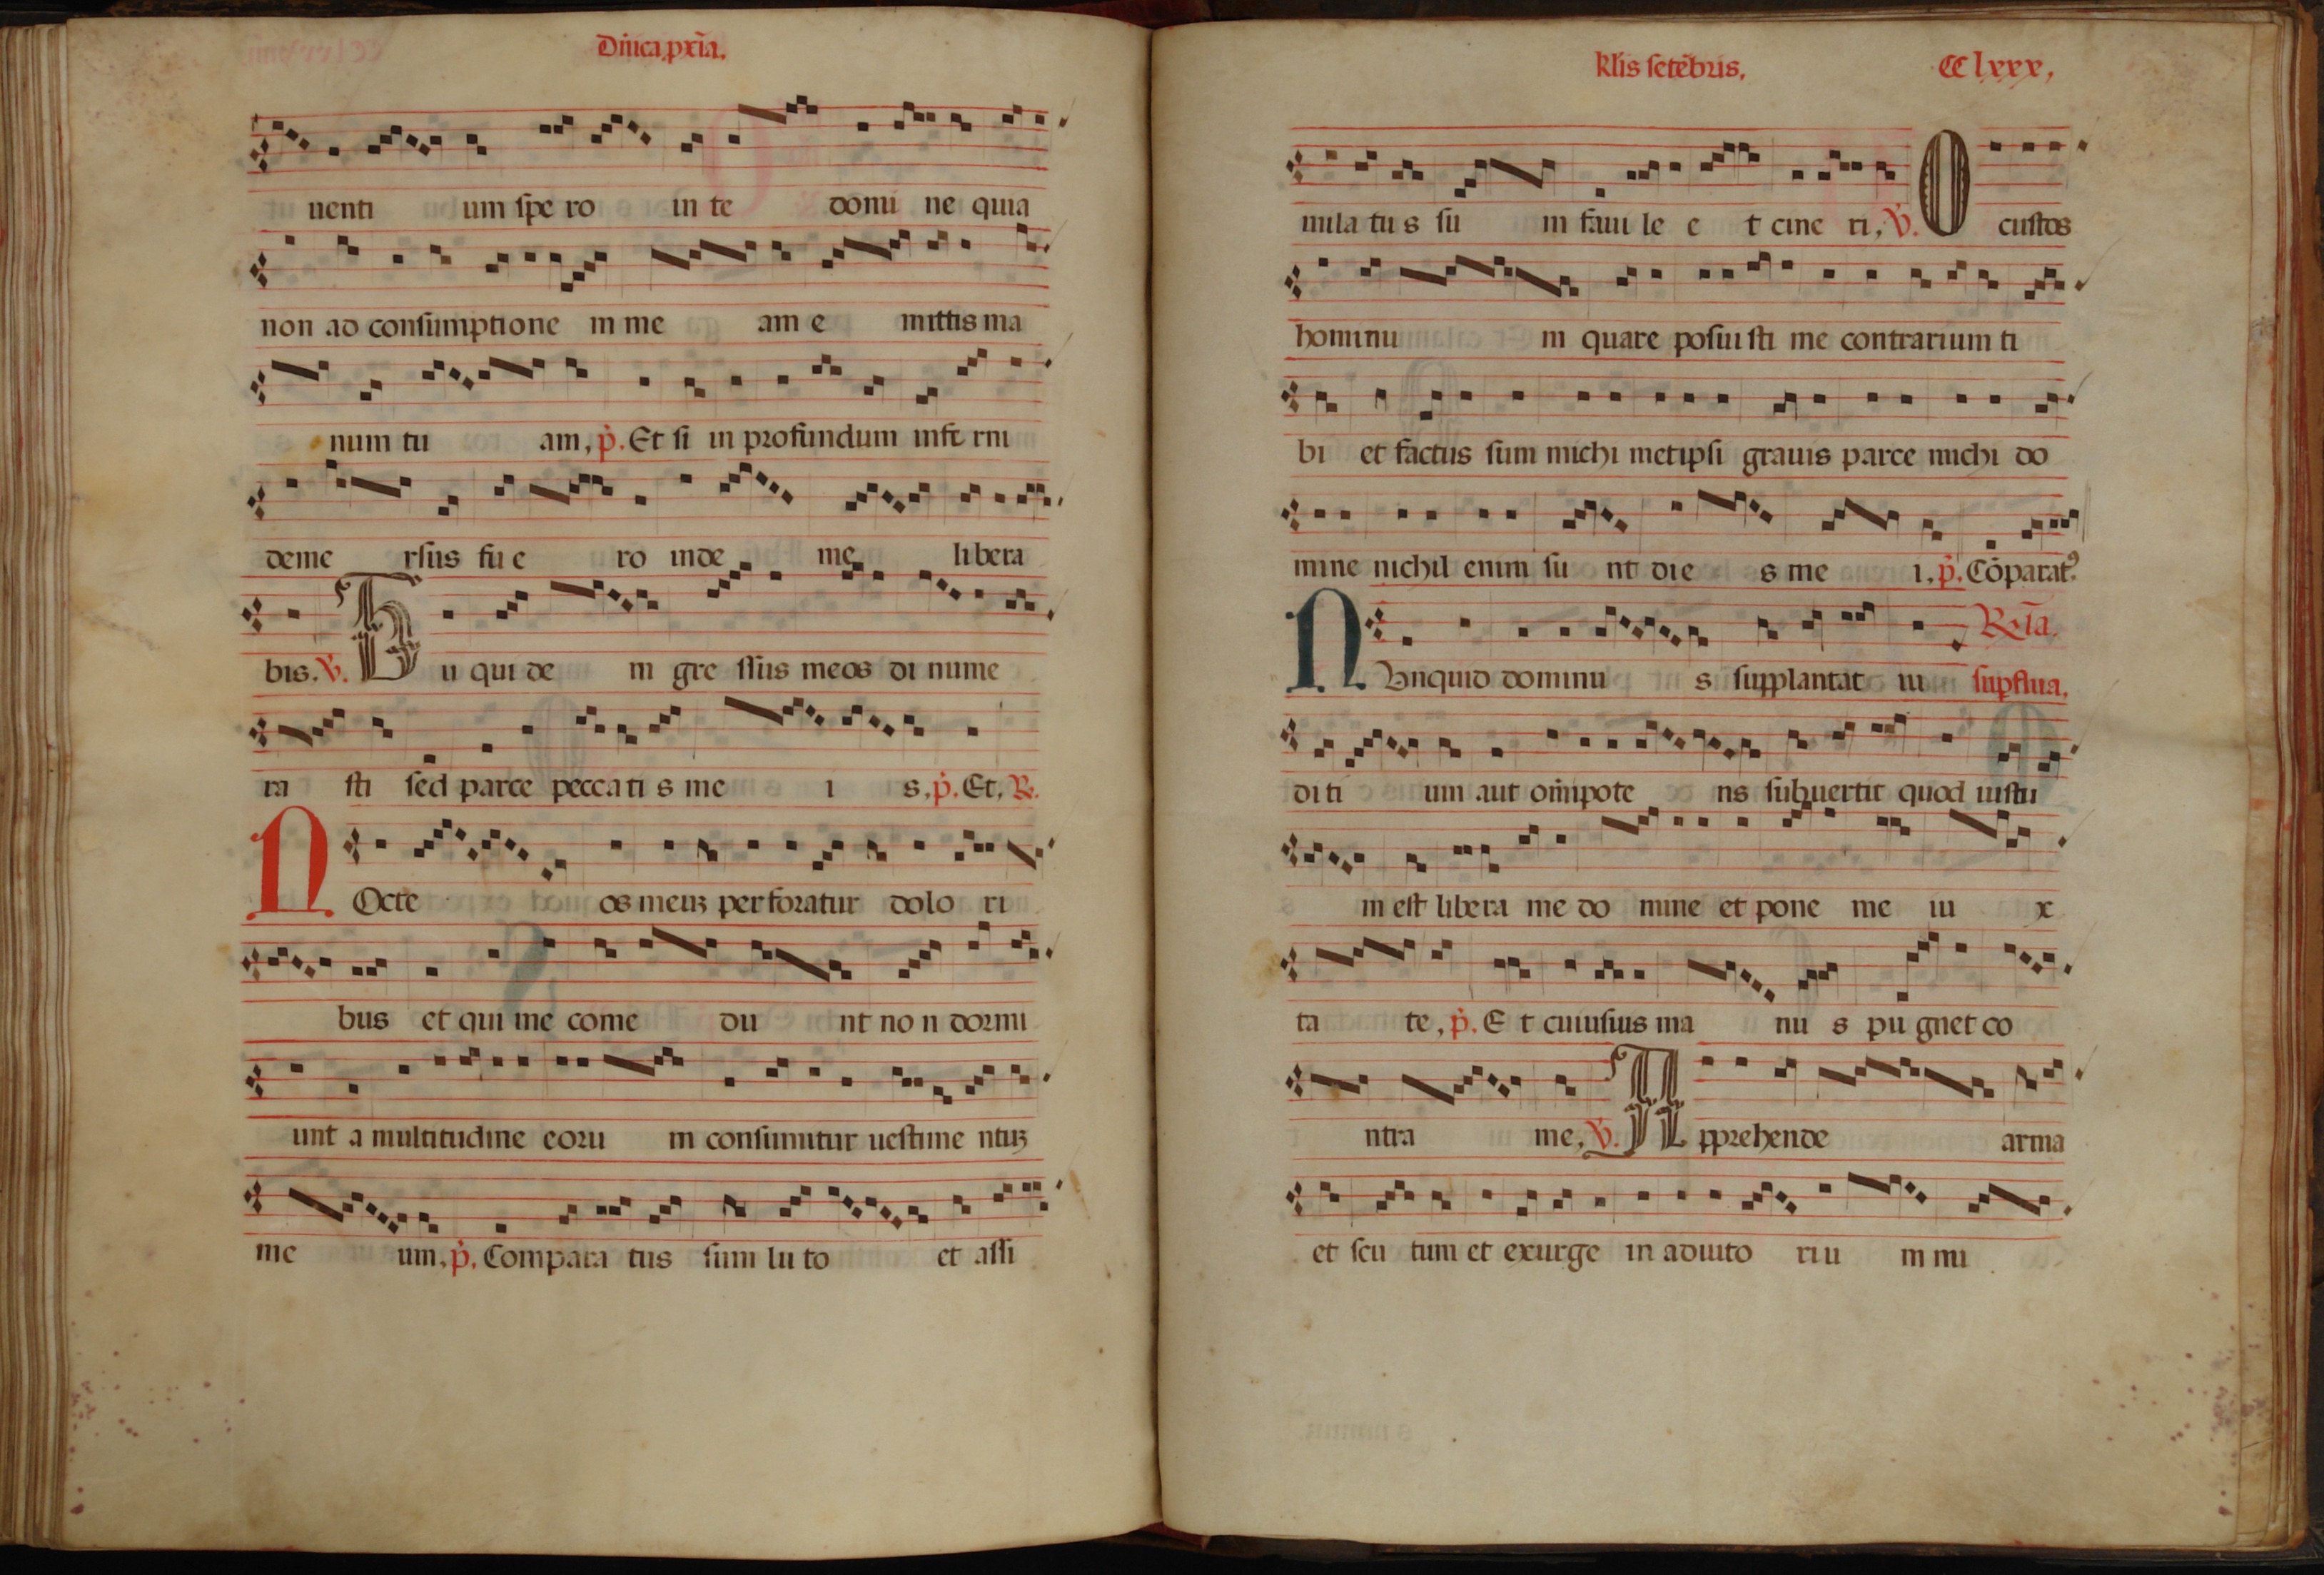 Dnĩca, pxĩa.
uenti um spe ro in te domi ne quia
non ad consumptione m me am e mittis ma
num tu am, p̃. Et si in profundum infe rni
deme rsus fu e ro inde me libera
bis. ℣. Tu qui de m gre ssus meos di nume
ra sti sed parce peccati s me i s, p̃. Et, ℟.
NOcte os meuꝫ perforatur dolo ri
bus et qui me come du nt no n dormi
unt a multitudine eoru m consumitur uestime ntuꝫ
me um, p̃. Compara tus sum lu to et assi
klis setẽbris. CClxxx,
mila tu s su m faui le e t cine ri, ℣. O custos
hominu m quare posui sti me contrarium ti
bi et factus sum michi metipsi grauis parce michi do
mine nichil enim su nt die s me i, p̃. Cõparatꝰ
NUnquid dominu s supplantat iu
supflua,
di ti um aut om̃ipote ns subuertit quod iustu
m est libera me do mine et pone me iu x
ta te, p̃. E t cuiusuis ma nu s pu gnet co
ntra me, ℣. Apprehende arma
et scu tum et exurge in adiuto riu m mi